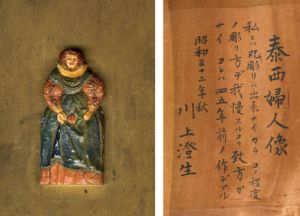 泰西婦人像
私ニハ丸彫リハ出来ナイカラ コノ程度
ノ彫リ方デ我慢スルヨリ致方ガ
ナイ コレハ四五年前ノ作デアル
昭和三十二年秋
川上澄生